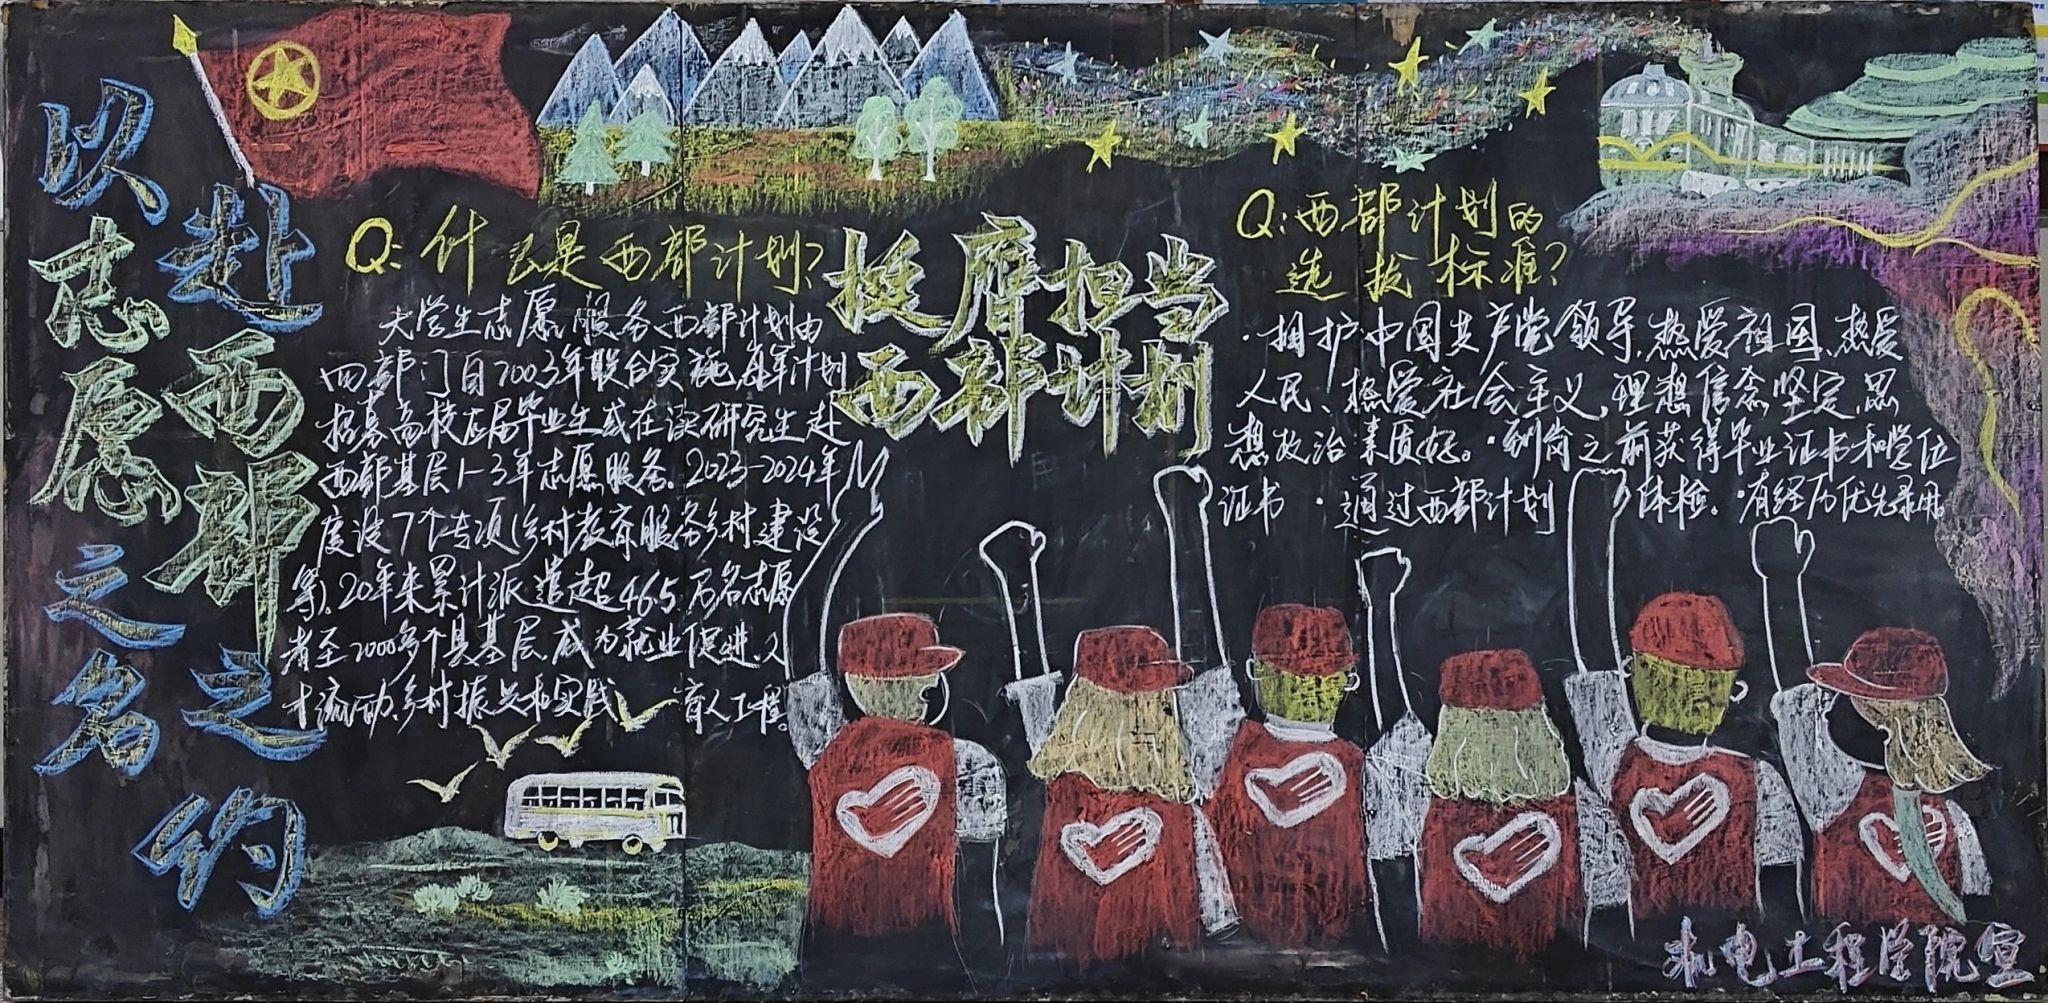 以志愿之名
赴西部之约
Q:什么是西部计划?
大学生志愿服务西部计划由
四部门自2003年联合实施,每年计划
招募高校应届毕业生或在读研究生赴
西部基层1-3年志愿服务.2023-2024年
度设7个专项(乡村教育服务乡村建设
等).20年来累计派遣超46.5万名志愿
者至2000多个县基层.成为就业促进、人
才流动、乡村振兴和实践 育人工程。
挺膺担当
西部计划
Q:西部计划的
选拔标准?
·拥护中国共产党领导,热爱祖国、热爱
人民、热爱社会主义,理想信念坚定,思
想政治素质好。·到岗之前获得毕业证书和学位
证书 ·通过西部计划 体检。·有经历优先录用
机电工程学院宣